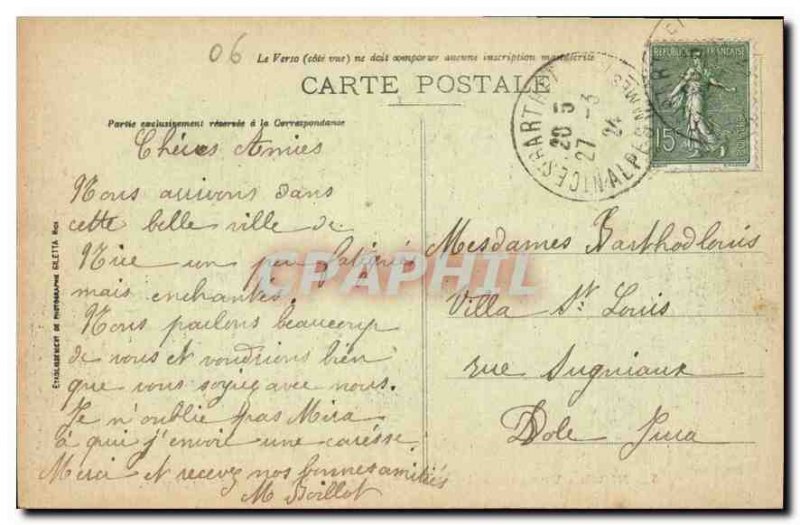 06
Le Verso (côté vue) ne doit comporter aucune inscription manuscrite
CARTE POSTALE
Partie exclusivement réservée à la Correspondance
Chères Amies
Nous arrivons dans
cette belle ville de
Nice un peu fatigués
mais enchantés.
Nous parlons beaucoup
de vous et voudrions bien
que vous soyiez avec nous.
Je n'oublie pas Mira
à qui j'envoie une caresse
Merci et recevez nos bonnes amitiés
M Boillot
Mesdames Barthod
Villa St Louis
rue
Dole Jura
ÉTABLISSEMENT DE PHOTOGRAPHIE GILETTA NICE
REPUBLIQUE FRANÇAISE
15
NICE ST BARTH
20 5
27 - 3
24
ALPES MMES
CRAPHIL